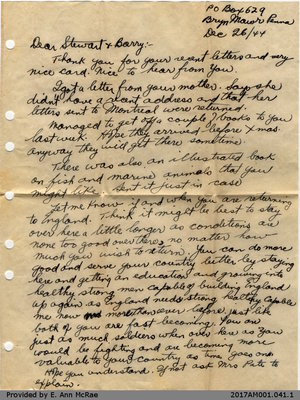 PO Box 629
Bryn Mawr Penna
Dec 26/44
Dear Stewart & Barry:-
Thank you for your recent letters and very
nice card. Nice to hear from you.
I got a letter from your mother. Says she
didn't have a decent address and that her
letters sent to Montreal were returned.
Managed to get off a couple books to you
last week. Hope they arrived before Xmas.
anyway they will get there sometime.
There was also an illustrated book
on fish and marine animals that you
might like. Sent it just in case
Let me know if and when you are returning
to England. Think it might be best to stay
over here a little longer as conditions are
none too good over there no matter how
much you wish to return. You can do more
good and serve your country better by staying
here and getting an education and growing into
healthy strong men capable of building England
up again as England needs strong healthy capable
men now more than ever before just like
both of you are fast becoming. You are
just as much soldiers when over here as you
would be fighting and are becoming more
valuable to your country as time goes on
Hope you understand. If not ask Mrs Pete to
explain.
Provided by E. Ann McRae
2017AM001.041.1